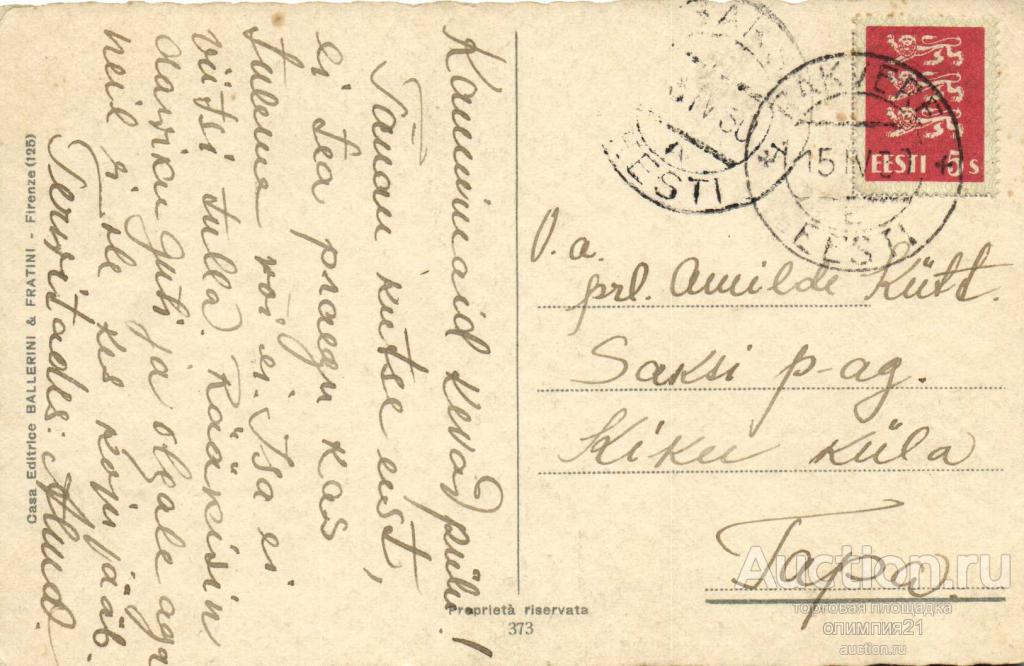 Kaunimaid kevadpühi!
Tänan kutse eest,
ei tea praegu kas
tuleme või ei. Isa ei
võtsi tulla. Rääkisin
ja olgale aga
neil ei ole kes koju jääb.
Tervitades:
Casa Editrice BALLERINI & FRATINI - Firenze (125)
Proprietà riservata
373
EESTI
RAKVERE
15 IV 30
E
EESTI
EESTI 5 S
V. a.
prl. Amilde Kütt.
Saksi p-ag.
Kiku küla
Tapa.
Auction.ru
торговая площадка
олимпия21
auction.ru